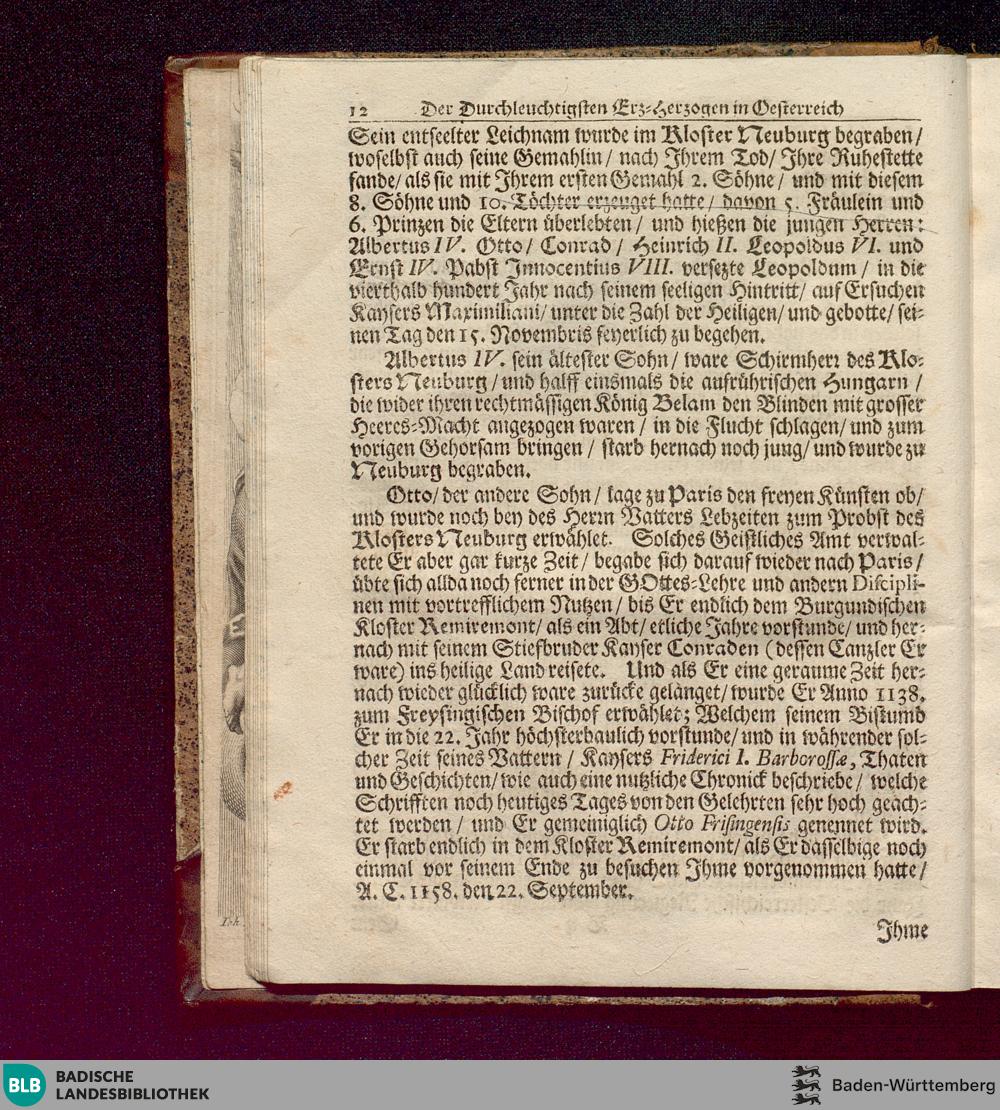 12 Der Durchleuchtigsten Erz-Herzogen in Oesterreich
Sein entseelter Leichnam wurde im Kloster Neuburg begraben /
woselbst auch seine Gemahlin / nach Ihrem Tod / Ihre Ruhestette
fande / als sie mit Ihrem ersten Gemahl 2. Söhne / und mit diesem
8. Söhne und 10. Töchter erzeuget hatte / davon 5. Fräulein und
6. Prinzen die Eltern überlebten / und hießen die jungen Herren:
Albertus IV. Otto / Conrad / Heinrich II. Leopoldus VI. und
Ernst IV. Pabst Innocentius VIII. versezte Leopoldum / in die
vierthalb hundert Jahr nach seinem seeligen Hintritt / auf Ersuchen
Kaysers Maximiliani / unter die Zahl der Heiligen / und gebotte / sei-
nen Tag den 15. Novembris feyerlich zu begehen.
Albertus IV. sein ältester Sohn / ware Schirmherr des Klo-
sters Neuburg / und halff einsmals die aufrührischen Hungarn /
die wider ihren rechtmässigen König Belam den Blinden mit grosser
Heeres-Macht angezogen waren / in die Flucht schlagen / und zum
vorigen Gehorsam bringen / starb hernach noch jung / und wurde zu
Neuburg begraben.
Otto / der andere Sohn / lage zu Paris den freyen Künsten ob /
und wurde noch bey des Herrn Vatters Lebzeiten zum Probst des
Klosters Neuburg erwählet. Solches Geistliches Amt verwal-
tete Er aber gar kurze Zeit / begabe sich darauf wieder nach Paris /
übte sich allda noch ferner in der GOttes-Lehre und andern Discipli-
nen mit vortrefflichem Nutzen / bis Er endlich dem Burgundischen
Kloster Remiremont / als ein Abt / etliche Jahre vorstunde / und her-
nach mit seinem Stiefbruder Kayser Conraden (dessen Canzler Er
ware) ins heilige Land reisete. Und als Er eine geraume Zeit her-
nach wieder glücklich ware zurücke gelanget / wurde Er Anno 1138.
zum Freysingischen Bischof erwählet; Welchem seinem Bistumb
Er in die 22. Jahr höchsterbaulich vorstunde / und in währender sol-
cher Zeit seines Vattern / Kaysers Friderici I. Barborossæ, Thaten
und Geschichten / wie auch eine nutzliche Chronick beschriebe / welche
Schrifften noch heutiges Tages von den Gelehrten sehr hoch geach-
tet werden / und Er gemeiniglich Otto Frisingensis genennet wird.
Er starb endlich in dem Kloster Remiremont / als Er dasselbige noch
einmal vor seinem Ende zu besuchen Ihme vorgenommen hatte /
A. C. 1158. den 22. September.
Ihme
BLB BADISCHE
LANDESBIBLIOTHEK
Baden-Württemberg